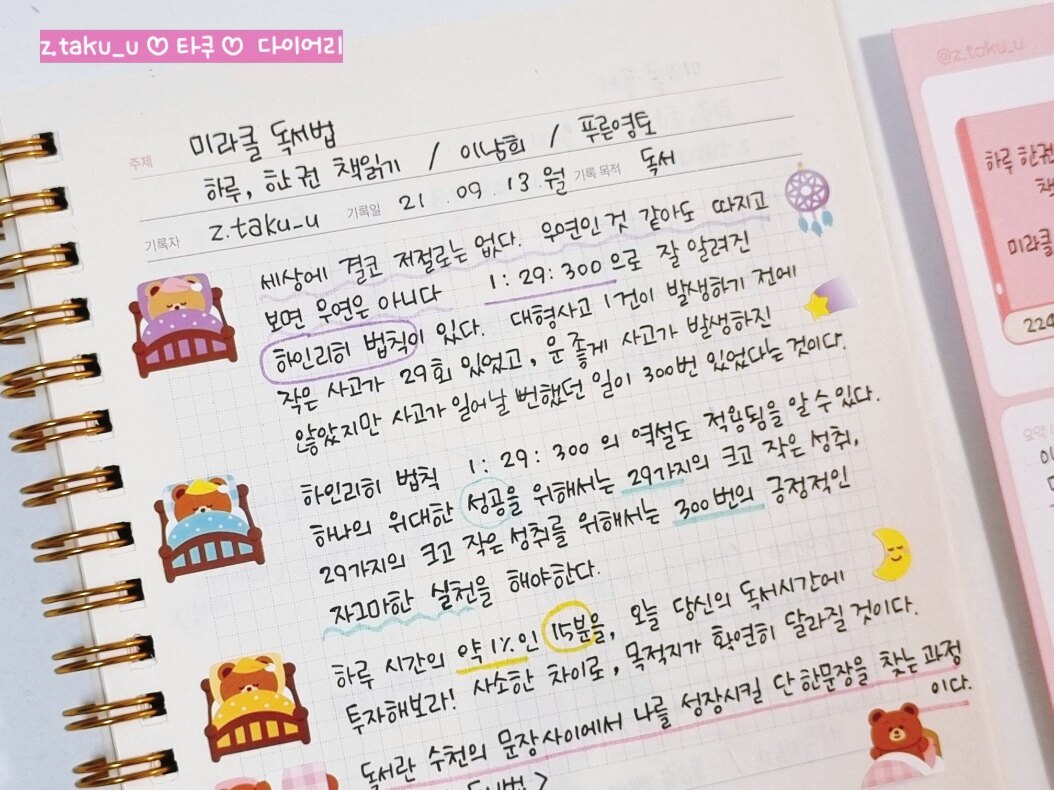 z.taku_u ♡ 타쿠 ♡ 다이어리
@z.taku_u
주제 미라클 독서법
하루, 한 권 책읽기 / 이남희 / 푸른영토
기록자 z.taku_u 기록일 21 . 09 . 13 . 월 기록 목적 독서
세상에 결코 저절로는 없다. 우연인 것 같아도 따지고
보면 우연은 아니다 1 : 29 : 300 으로 잘 알려진
하인리히 법칙이 있다. 대형사고 1건이 발생하기 전에
작은 사고가 29회 있었고, 운 좋게 사고가 발생하진
않았지만 사고가 일어날 뻔했던 일이 300번 있었다는 것이다.
하인리히 법칙 1 : 29 : 300 의 역설도 적용됨을 알 수 있다.
하나의 위대한 성공을 위해서는 29가지의 크고 작은 성취,
29가지의 크고 작은 성취를 위해서는 300번의 긍정적인
자그마한 실천을 해야한다.
하루 시간의 약 1%인 15분을, 오늘 당신의 독서시간에
투자해보라! 사소한 차이로, 목적지가 확연히 달라질 것이다.
독서란 수천의 문장사이에서 나를 성장시킬 단 한문장을 찾는 과정
이다.
하루 한권
책
미라클